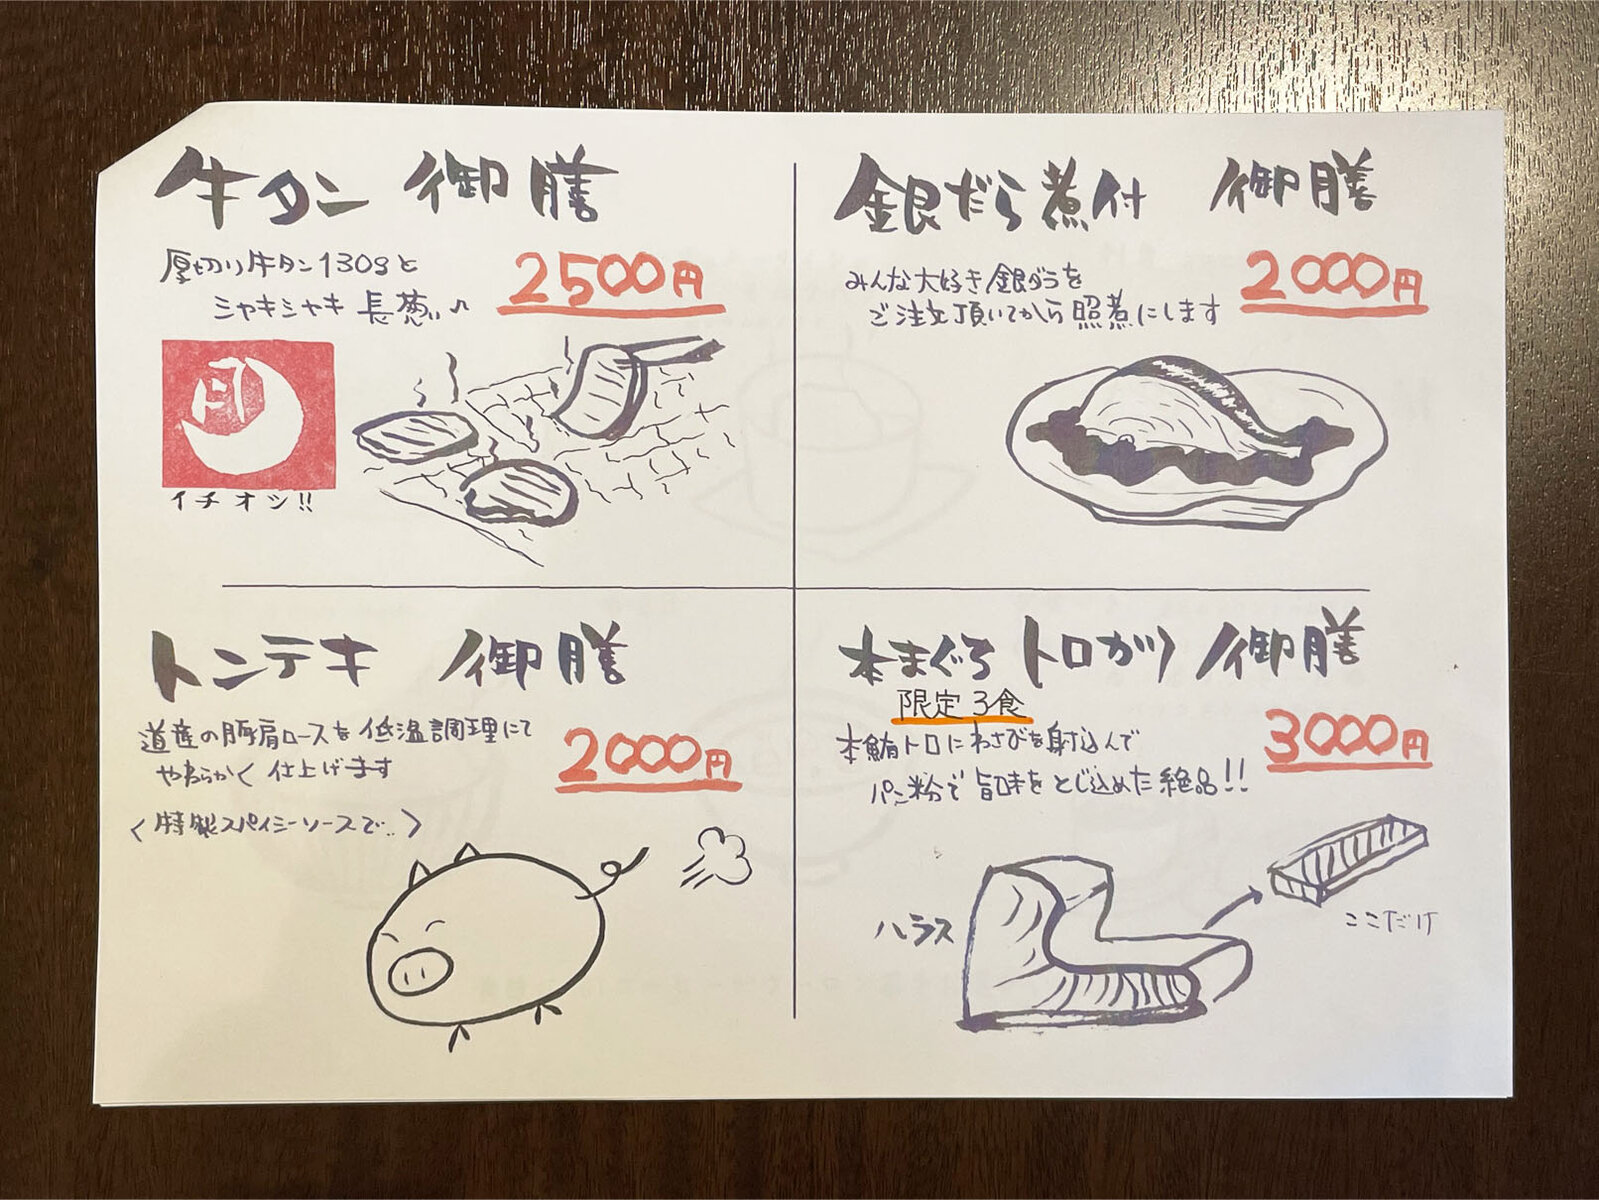 牛タン 御膳
厚切り牛タン130gと
シャキシャキ 長葱い♪
2500円
月
イチオシ!!
銀だら煮付 御膳
みんな大好き銀ダラを
ご注文頂いてから照煮にします
2000円
トンテキ 御膳
道産の豚肩ロースを低温調理にて
やわらかく仕上げます
〈特製スパイシーソースで..〉
2000円
本まぐろ トロカツ 御膳
限定3食
本鮪トロにわさびを射込んで
パン粉で旨味をとじ込めた絶品!!
3000円
ハラス
ここだけ